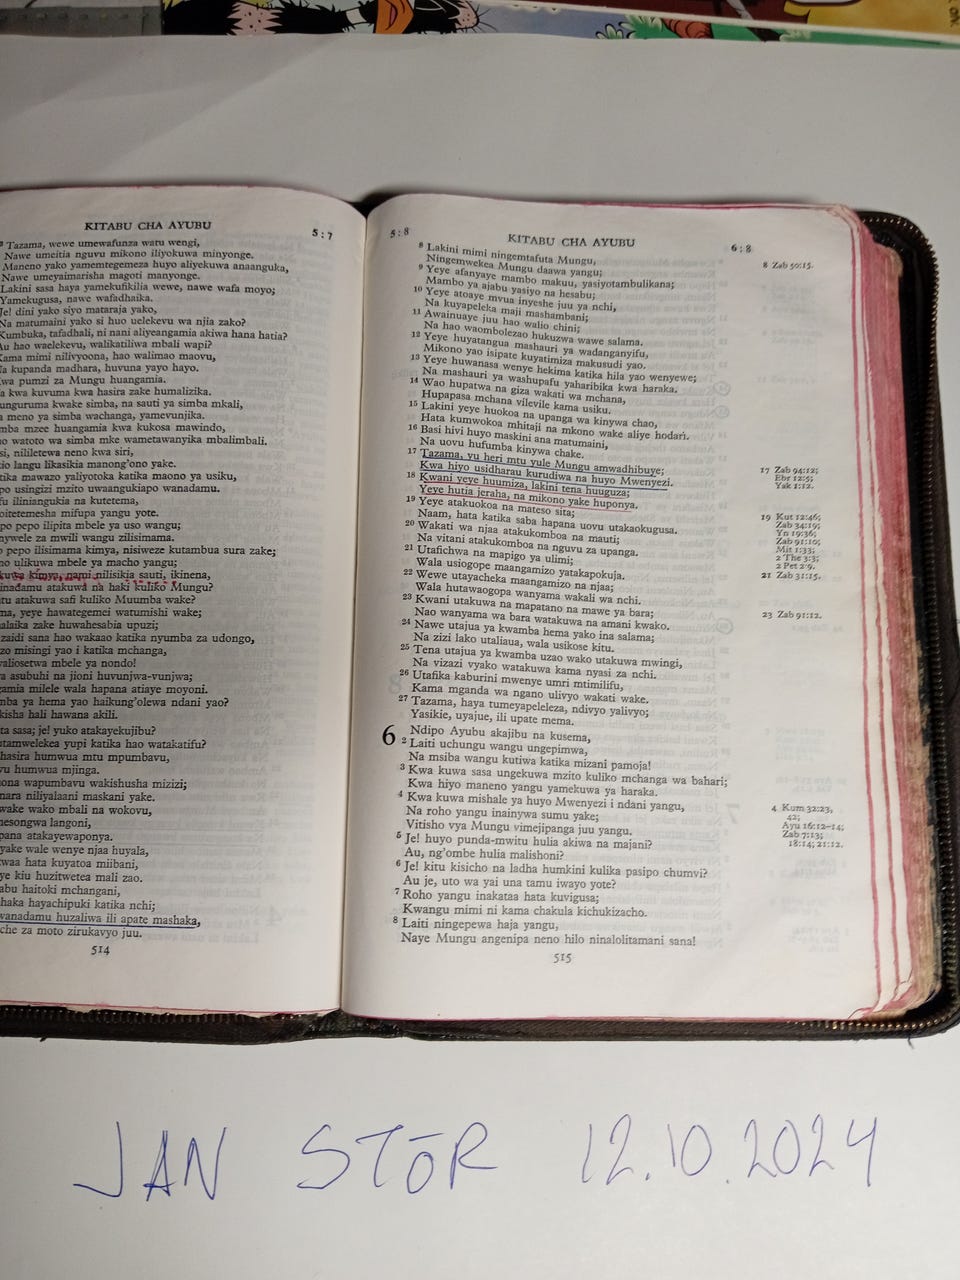 KITABU CHA AYUBU
5:7
3 Tazama, wewe umewafunza watu wengi,
Nawe umeitia nguvu mikono iliyokuwa minyonge.
Maneno yako yamemtegemeza huyo aliyekuwa anaanguka,
Nawe umeyaimarisha magoti manyonge.
Lakini sasa haya yamekufikilia wewe, nawe wafa moyo;
Yamekugusa, nawe wafadhaika.
Je! dini yako siyo mataraja yako,
Na matumaini yako si huo uelekevu wa njia zako?
Kumbuka, tafadhali, ni nani aliyeangamia akiwa hana hatia?
Au hao waelekevu, walikatiliwa mbali wapi?
Kama mimi nilivyoona, hao walimao maovu,
Na kupanda madhara, huvuna yayo hayo.
kwa pumzi za Mungu huangamia.
a kwa kuvuma kwa hasira zake humalizika.
unguruma kwake simba, na sauti ya simba mkali,
a meno ya simba wachanga, yamevunjika.
mba mzee huangamia kwa kukosa mawindo,
o watoto wa simba mke wametawanyika mbalimbali.
si, nililetewa neno kwa siri,
io langu likasikia manong'ono yake.
tika mawazo yaliyotoka katika maono ya usiku,
po usingizi mzito uwaangukiapo wanadamu.
fu iliniangukia na kutetema,
oitetemesha mifupa yangu yote.
po pepo ilipita mbele ya uso wangu;
nywele za mwili wangu zilisimama.
o pepo ilisimama kimya, nisiweze kutambua sura zake;
no ulikuwa mbele ya macho yangu;
kuwa kimya, nami nilisikia sauti, ikinena,
inadamu atakuwa na haki kuliko Mungu?
tu atakuwa safi kuliko Muumba wake?
ma, yeye hawategemei watumishi wake;
alaika zake huwahesabia upuzi;
zaidi sana hao wakaao katika nyumba za udongo,
zo misingi yao i katika mchanga,
valiosetwa mbele ya nondo!
a asubuhi na jioni huvunjwa-vunjwa;
gamia milele wala hapana atiaye moyoni.
mba ya hema yao haikung'olewa ndani yao?
kisha hali hawana akili.
ta sasa; je! yuko atakayekujibu?
tamwelekea yupi katika hao watakatifu?
hasira humwua mtu mpumbavu,
vu humwua mjinga.
ona wapumbavu wakishusha mizizi;
nara niliyalaani maskani yake.
wake wako mbali na wokovu,
nesongwa langoni,
pana atakayewaponya.
yake wale wenye njaa huyala,
twaa hata kuyatoa miibani,
ye kiu huzitwetea mali zao.
abu haitoki mchangani,
haka hayachipuki katika nchi;
wanadamu huzaliwa ili apate mashaka,
che za moto zirukavyo juu.
514
5:8
KITABU CHA AYUBU
6:8
8 Lakini mimi ningemtafuta Mungu,
Ningemwekea Mungu daawa yangu;
9 Yeye afanyaye mambo makuu, yasiyotambulikana;
Mambo ya ajabu yasiyo na hesabu;
10 Yeye atoaye mvua inyeshe juu ya nchi,
Na kuyapeleka maji mashambani;
11 Awainuaye juu hao walio chini;
Na hao waombolezao hukuzwa wawe salama.
12 Yeye huyatangua mashauri ya wadanganyifu,
Mikono yao isipate kuyatimiza makusudi yao.
13 Yeye huwanasa wenye hekima katika hila yao wenyewe;
Na mashauri ya washupafu yaharibika kwa haraka.
14 Wao hupatwa na giza wakati wa mchana,
Hupapasa mchana vilevile kama usiku.
15 Lakini yeye huokoa na upanga wa kinywa chao,
Hata kumwokoa mhitaji na mkono wake aliye hodari.
16 Basi hivi huyo maskini ana matumaini,
Na uovu hufumba kinywa chake.
17 Tazama, yu heri mtu yule Mungu amwadhibuye;
Kwa hiyo usidharau kurudiwa na huyo Mwenyezi.
18 Kwani yeye huumiza, lakini tena huuguza;
Yeye hutia jeraha, na mikono yake huponya.
19 Yeye atakuokoa na mateso sita;
Naam, hata katika saba hapana uovu utakaokugusa.
20 Wakati wa njaa atakukomboa na mauti;
Na vitani atakukomboa na nguvu za upanga.
21 Utafichwa na mapigo ya ulimi;
Wala usiogope maangamizo yatakapokuja.
22 Wewe utayacheka maangamizo na njaa;
Wala hutawaogopa wanyama wakali wa nchi.
23 Kwani utakuwa na mapatano na mawe ya bara;
Nao wanyama wa bara watakuwa na amani kwako.
24 Nawe utajua ya kwamba hema yako ina salama;
Na zizi lako utaliaua, wala usikose kitu.
25 Tena utajua ya kwamba uzao wako utakuwa mwingi,
Na vizazi vyako watakuwa kama nyasi za nchi.
26 Utafika kaburini mwenye umri mtimilifu,
Kama mganda wa ngano ulivyo wakati wake.
27 Tazama, haya tumeyapeleleza, ndivyo yalivyo;
Yasikie, uyajue, ili upate mema.
6 Ndipo Ayubu akajibu na kusema,
2 Laiti uchungu wangu ungepimwa,
Na msiba wangu kutiwa katika mizani pamoja!
3 Kwa kuwa sasa ungekuwa mzito kuliko mchanga wa bahari;
Kwa hiyo maneno yangu yamekuwa ya haraka.
4 Kwa kuwa mishale ya huyo Mwenyezi i ndani yangu,
Na roho yangu inainywa sumu yake;
Vitisho vya Mungu vimejipanga juu yangu.
5 Je! huyo punda-mwitu hulia akiwa na majani?
Au, ng'ombe hulia malishoni?
6 Je! kitu kisicho na ladha humkini kulika pasipo chumvi?
Au je, uto wa yai una tamu iwayo yote?
7 Roho yangu inakataa hata kuvigusa;
Kwangu mimi ni kama chakula kichukizacho.
8 Laiti ningepewa haja yangu,
Naye Mungu angenipa neno hilo ninalolitamani sana!
515
8 Zab 50:15.
17 Zab 94:12;
Ebr 12:5;
Yak 1:12.
19 Kut 12:46;
Zab 34:19;
Yn 19:36;
Zab 91:10;
Mit 1:33;
2 The 3:3;
2 Pet 2:9.
21 Zab 31:15.
23 Zab 91:12.
4 Kum 32:23,
42;
Ayu 16:12-14;
Zab 7:13;
18:14; 21:12.
JAN STŌR 12.10.2024